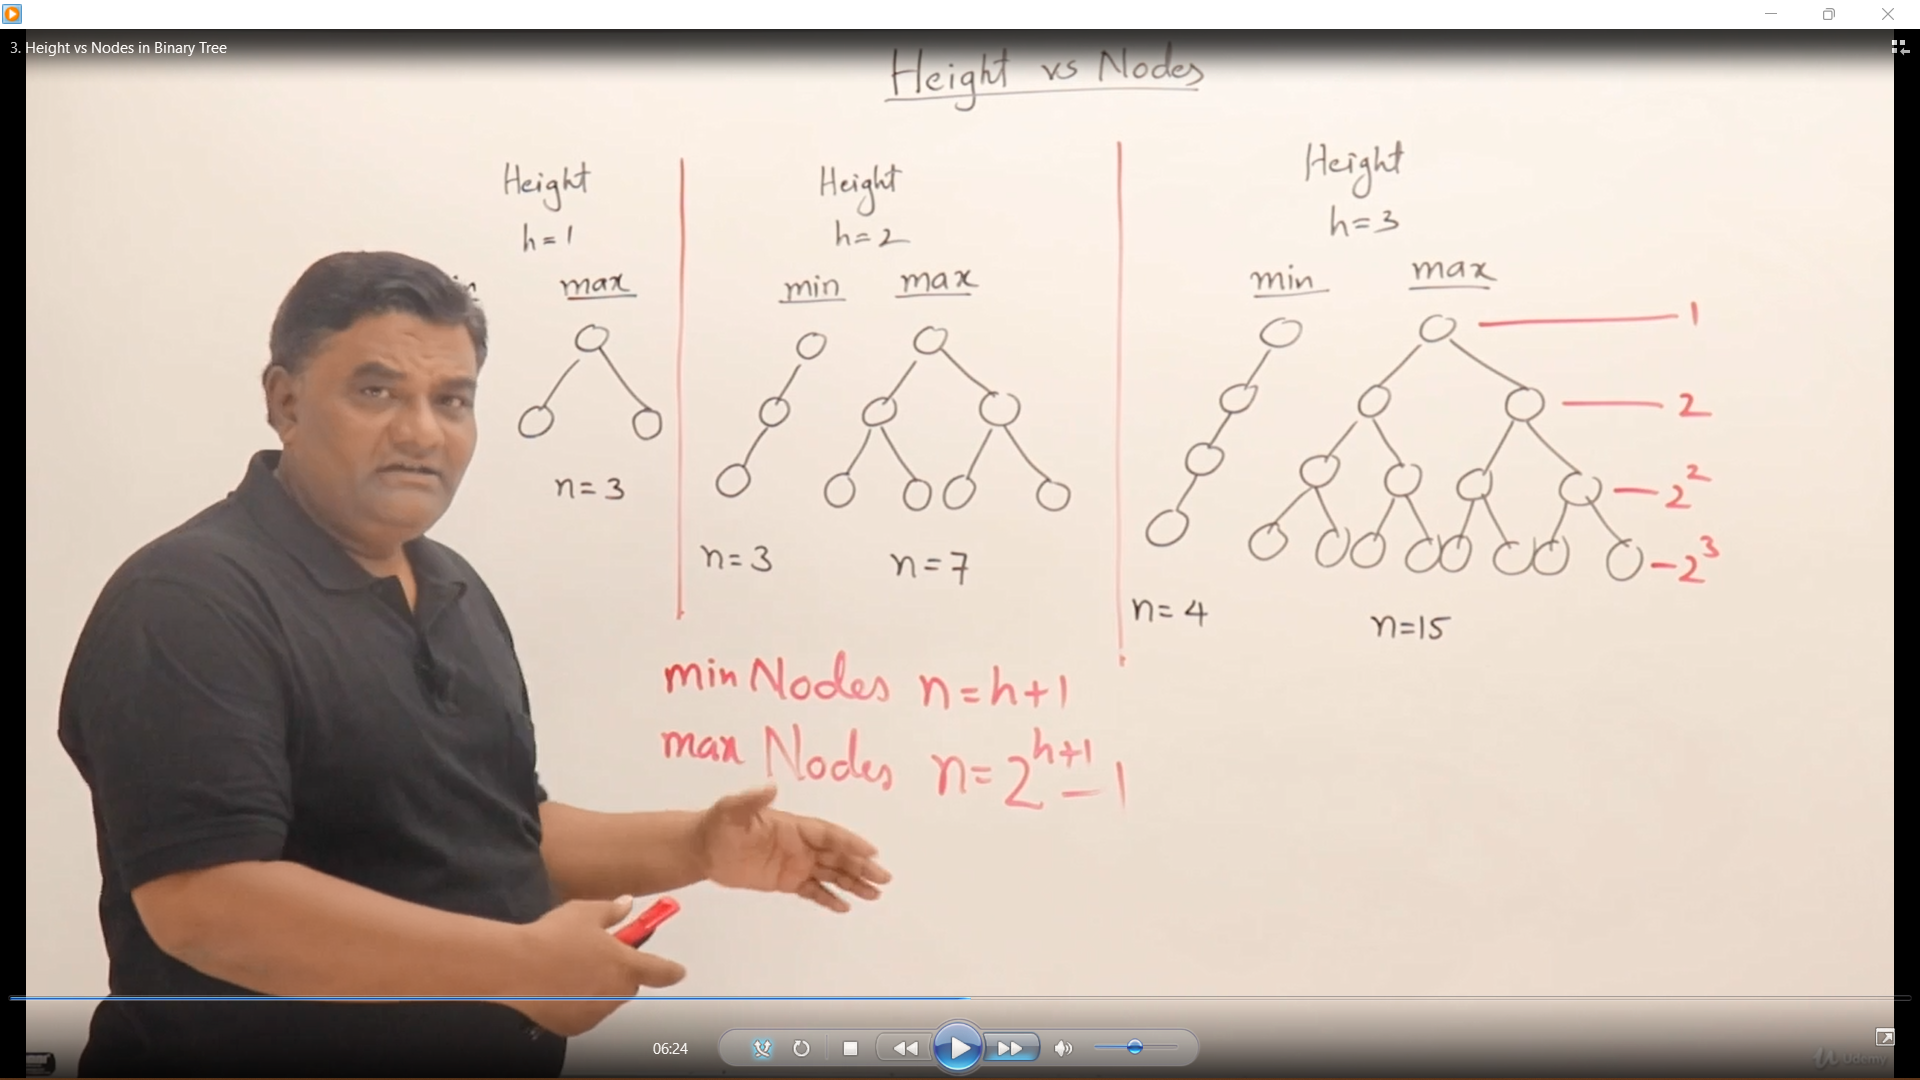 3. Height vs Nodes in Binary Tree
Height vs Nodes
Height
h=1
max
n=3
Height
h=2
min max
n=3 n=7
Height
h=3
min max
1
2
2²
2³
n=4
n=15
min Nodes n=h+1
max Nodes n=2^(h+1)-1
06:24
Udemy